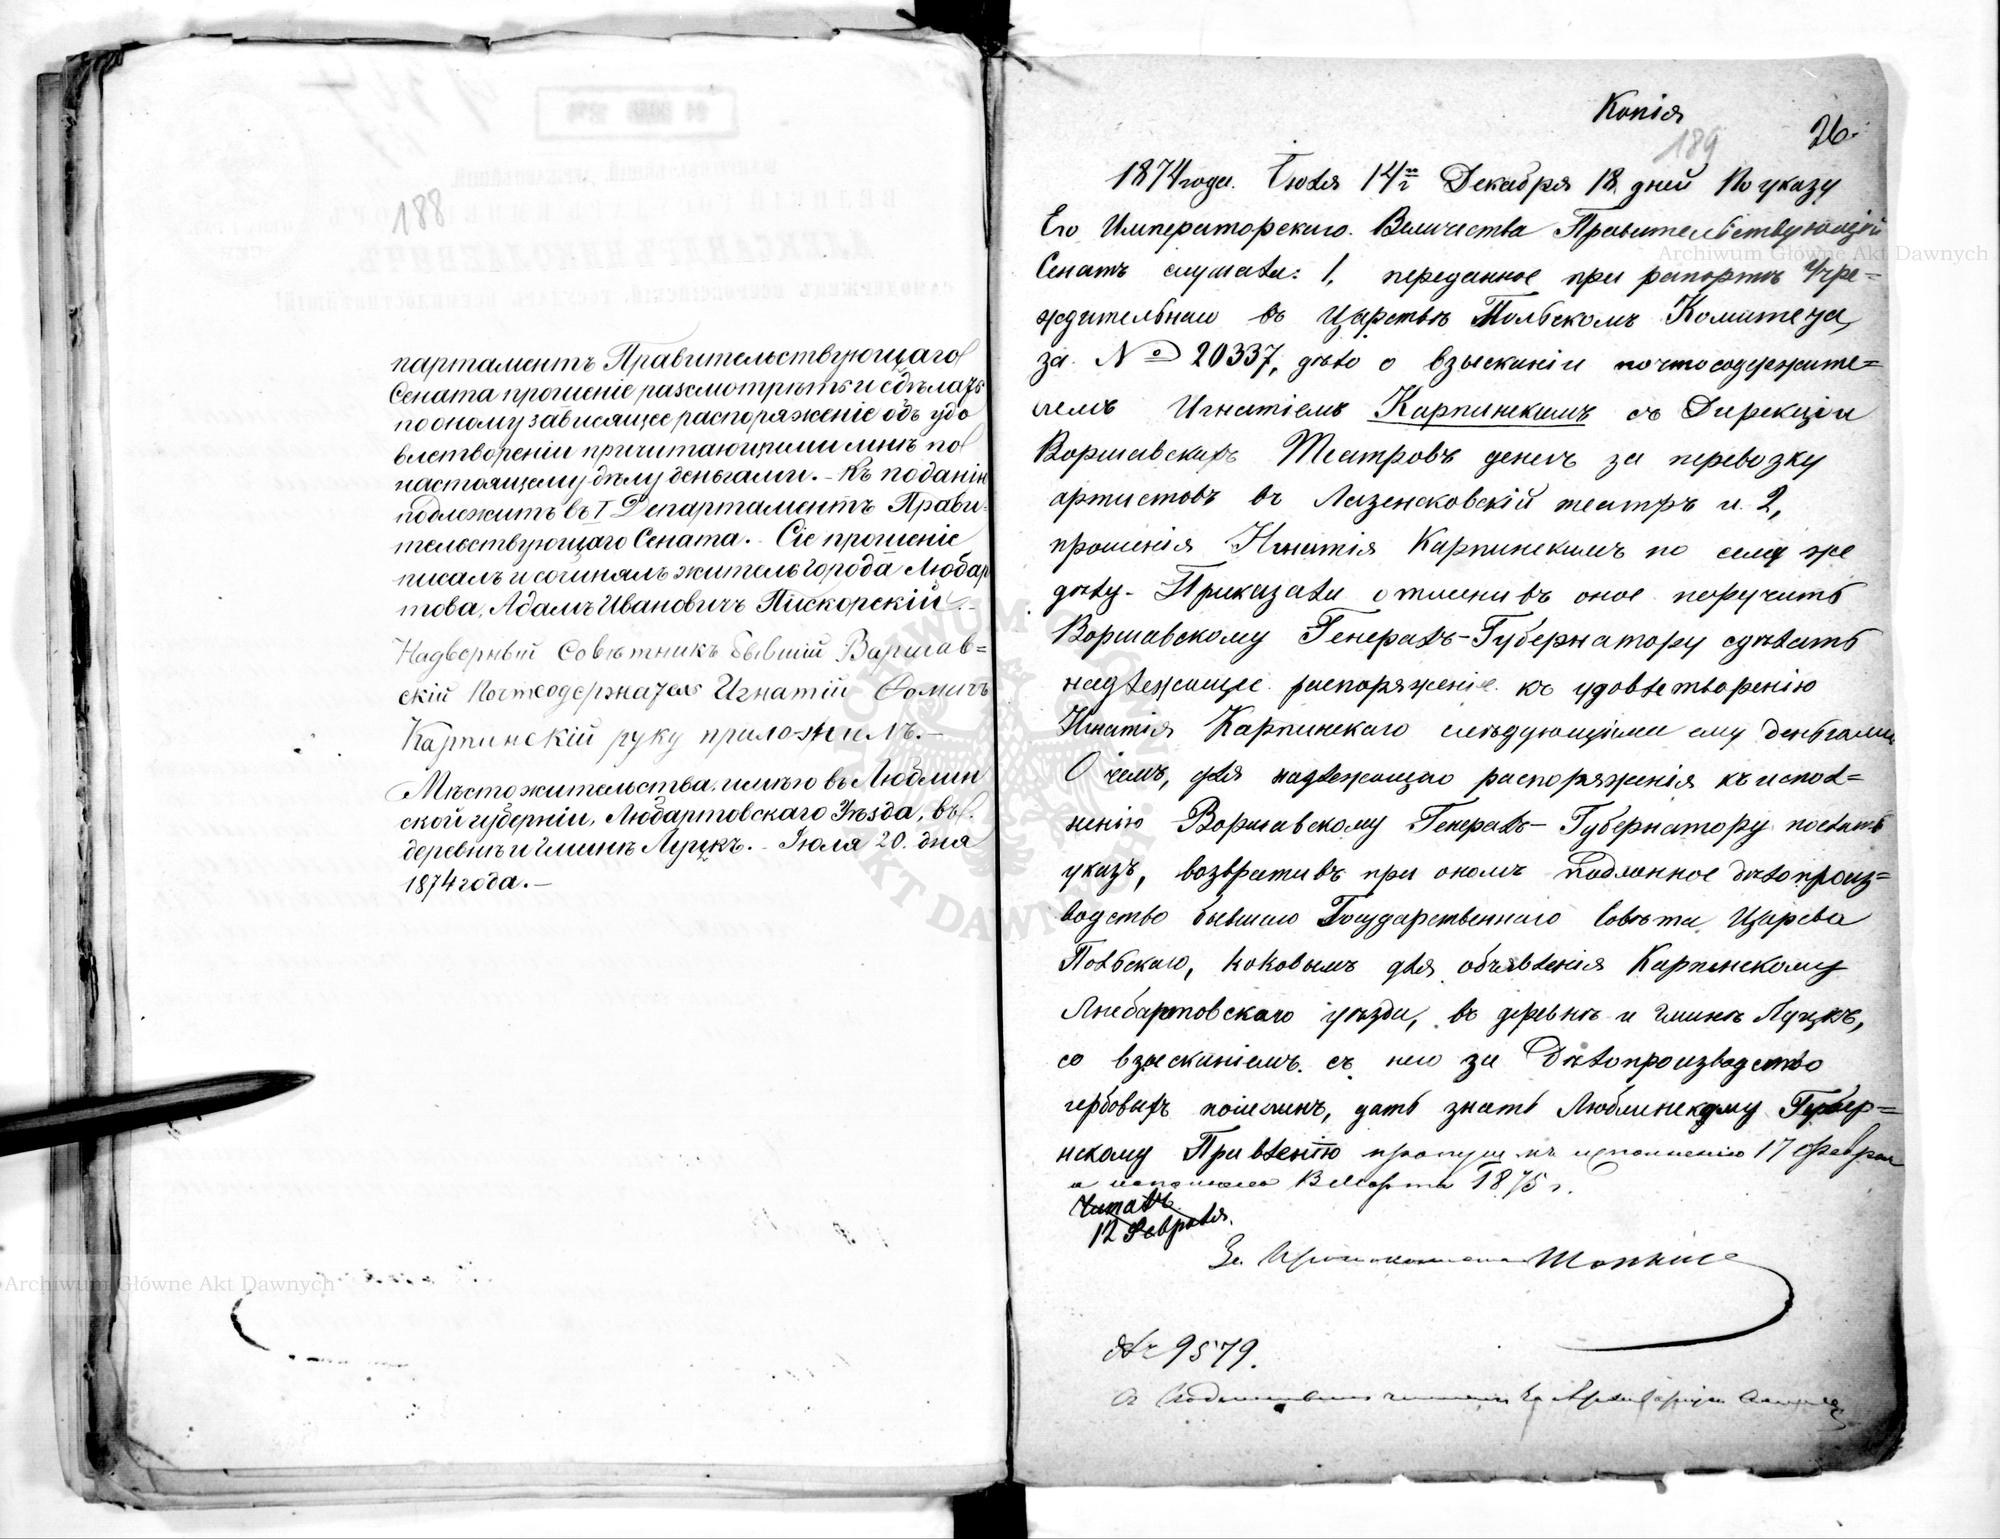 188
партаментъ Правительствующаго
Сената прошеніе разсмотрѣть и сдѣлать
по оному зависящее распоряженіе объ удо
влетвореніи причитающимися мнѣ по
настоящему дѣлу деньгами. - Къ поданію
подлежитъ въ I Департаментъ Прави-
тельствующаго Сената. - Сіе прошеніе
писалъ и сочинялъ житель города Любар
това, Адамъ Ивановичъ Пискорскій. -
Надворный Совѣтникъ бывшій Варшав=
скій Почтсодержатель Игнатій Фомичъ
Карпинскій руку приложилъ. -
Мѣстожительства имѣю въ Люблин
ской губерніи, Любартовскаго Уѣзда, въ
деревнѣ и гминѣ Луцкѣ. - Іюля 20. дня
1874 года. -
Копія
189
26.
1874 года. Іюля 14 и Декабря 18 дней По указу
Его Императорскаго Величества Правительствующій
Сенатъ слушали: 1, переданное при рапортѣ Учре=
дительнаго въ Царствѣ Польскомъ Комитета,
за № 20337, дѣло о взысканіи почтосодержате=
лемъ Игнатіемъ Карпинскимъ съ Дирекціи
Варшавскихъ Театровъ денегъ за перевозку
артистовъ въ Лазенковскій театръ и 2,
прошенія Игнатія Карпинскимъ по сему же
дѣлу - Приказали отмѣнивъ оное поручить
Варшавскому Генералъ-Губернатору сдѣлать
надлежащее распоряженіе къ удовлетворенію
Игнатія Карпинскаго слѣдующими ему деньгами
О чемъ, для надлежащаго распоряженія къ испол=
ненію Варшавскому Генералъ-Губернатору послать
указъ, возвративъ при ономъ подлинное дѣлопроиз=
водство бывшаго Государственнаго Совѣта Царства
Польскаго, каковымъ для объявленія Карпинскому
Любартовскаго уѣзда, въ деревнѣ и гминѣ Луцкѣ,
со взысканіемъ съ него за дѣлопроизводство
гербовыхъ пошлинъ, дать знать Люблинскому Губер=
нскому Правленію къ исполненію 17 Февраля
и Марта 1875 г.
Читалъ
12 Февраля.
За
№ 9579.